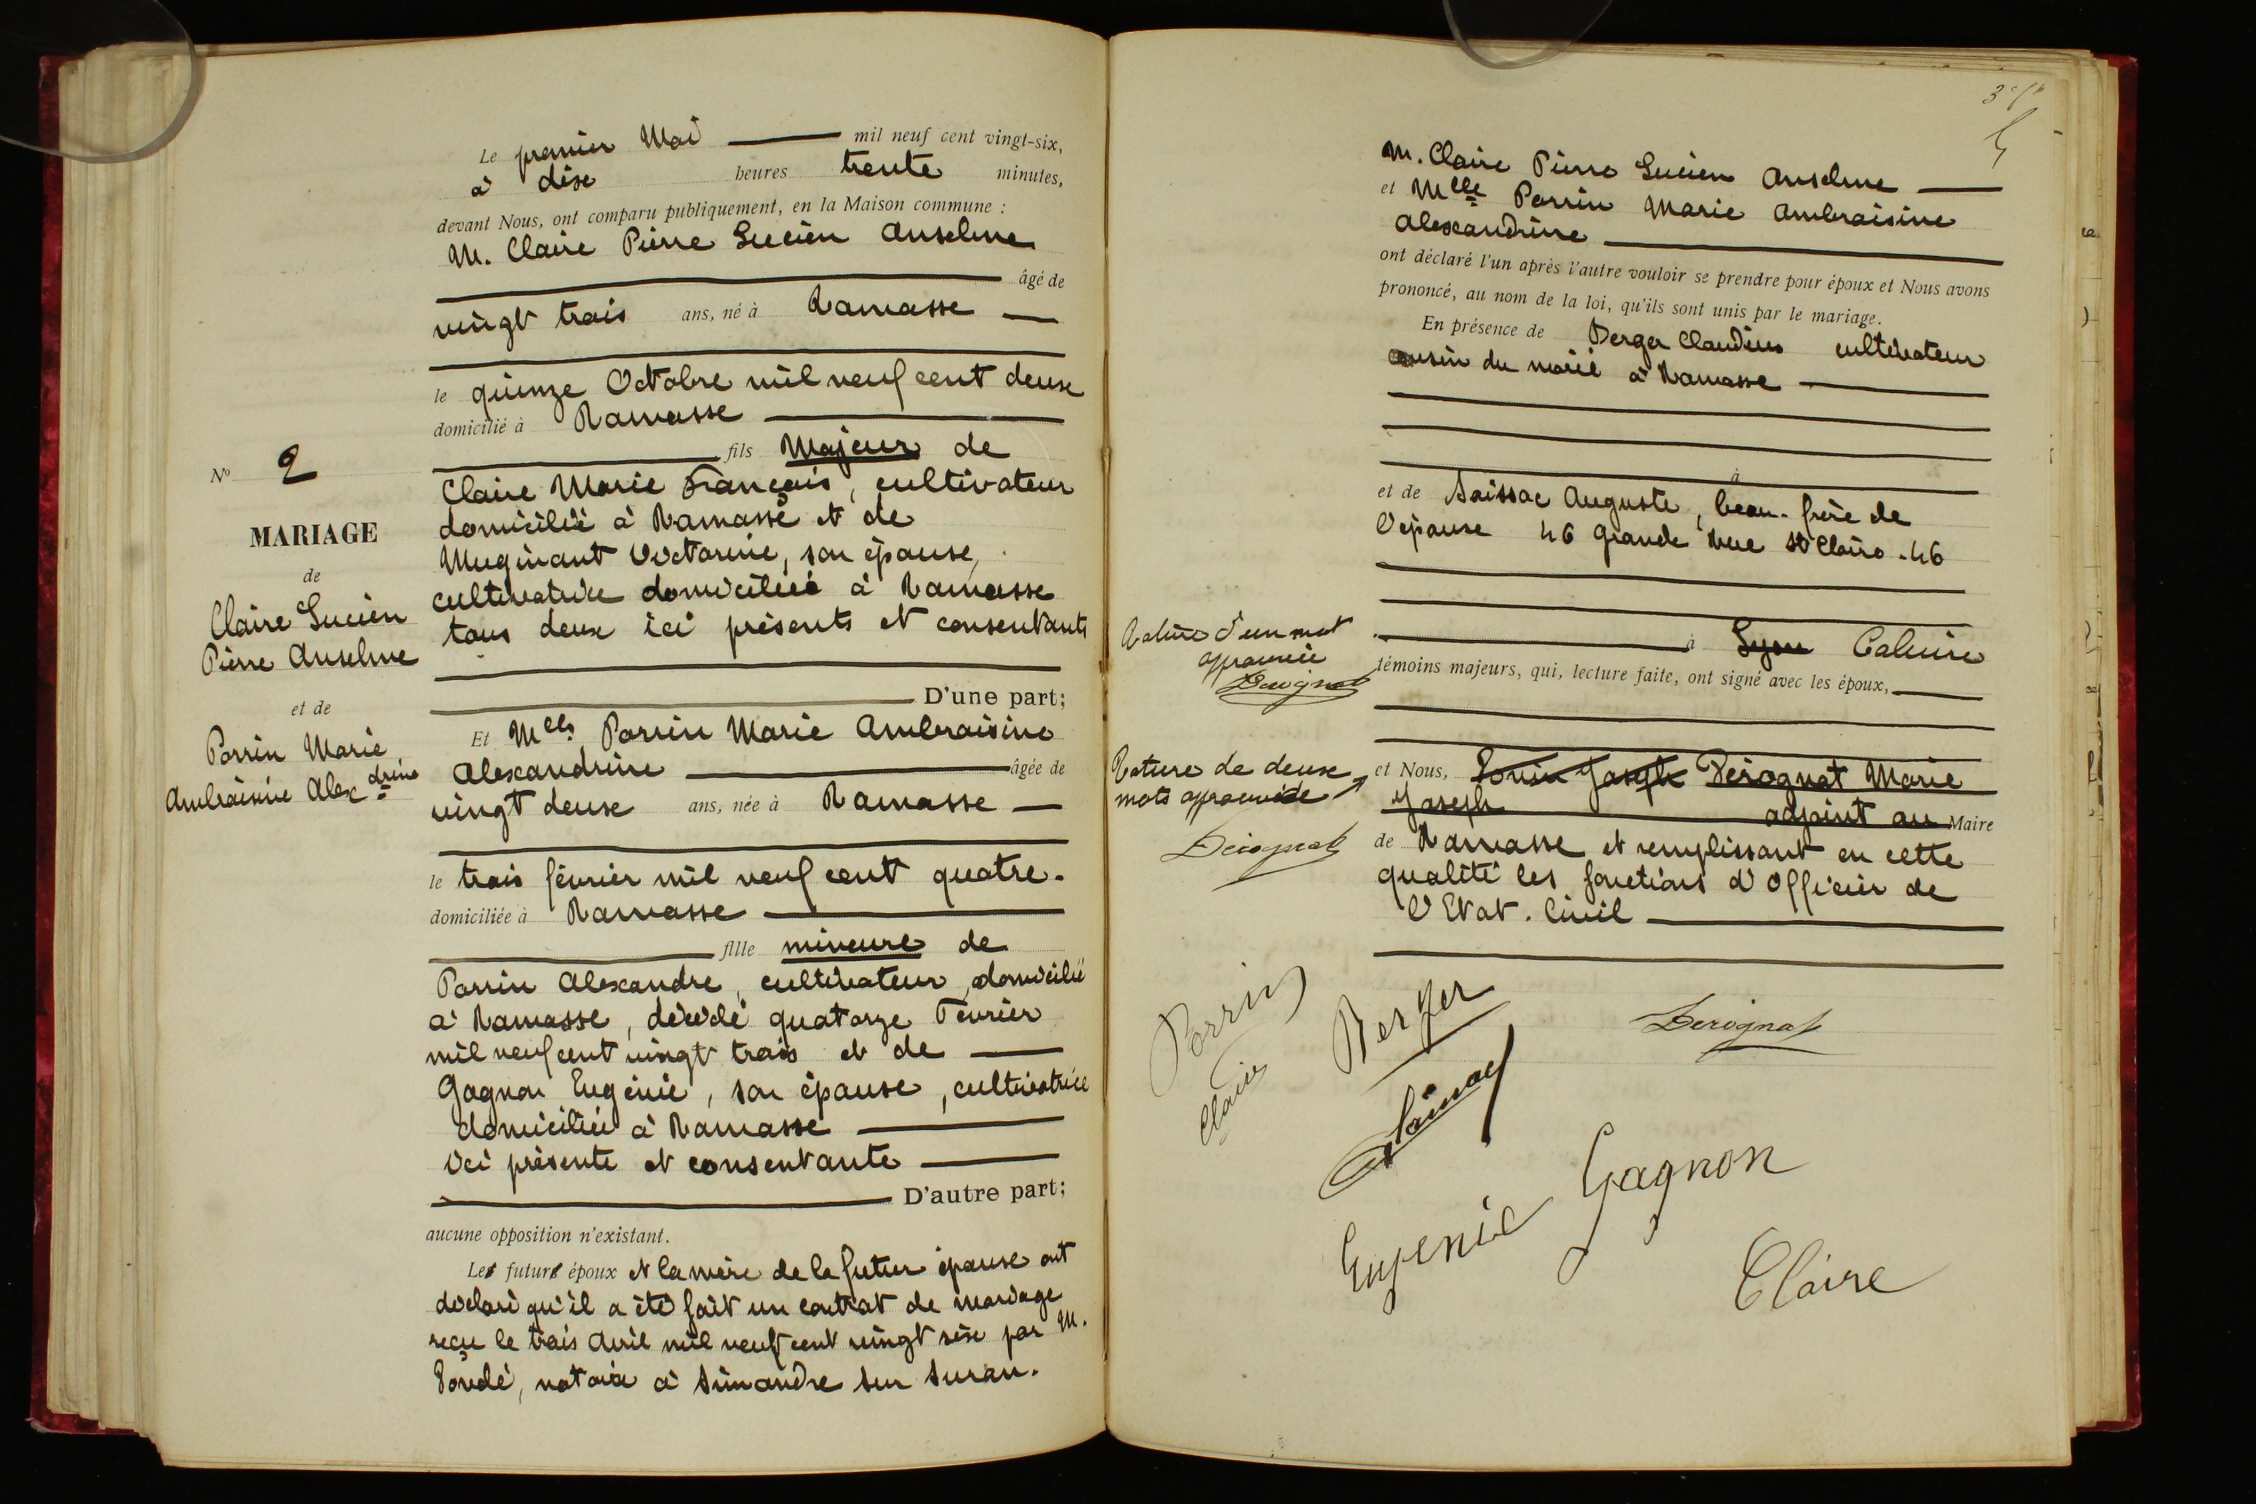 Le premier Mai mil neuf cent vingt-six,
à dix heures trente minutes,
devant Nous, ont comparu publiquement, en la Maison commune :
M. Claire Pierre Lucien Anselme
âgé de
vingt trois ans, né à Ramasse
le quinze Octobre mil neuf cent deux
domicilié à Ramasse
fils Majeur de
Claire Marie François, cultivateur
domicilié à Ramasse et de
Muginant Victorine, son épouse,
cultivatrice domiciliée à Ramasse
tous deux ici présents et consentants
D'une part;
Nº 2
MARIAGE
de
Claire Lucien
Pierre Anselme
et de
Perrin Marie
Ambroisine Alexdrine
Et Melle Perrin Marie Ambroisine
Alexandrine âgée de
vingt deux ans, née à Ramasse
le trois février mil neuf cent quatre.
domiciliée à Ramasse
fille mineure de
Perrin Alexandre, cultivateur, domicilié
à Ramasse, décédé quatorze Février
mil neuf cent vingt trois et de
Gagnon Eugénie, son épouse, cultivatrice
domiciliée à Ramasse
Ici présente et consentante
D'autre part;
aucune opposition n'existant.
Les futurs époux et la mère de la futur épouse ont
déclaré qu'il a été fait un contrat de mariage
reçu le trois Avril mil neuf cent vingt six par M.
notaire à Simandre sur Suran.
M. Claire Pierre Lucien Anselme
et Melle Perrin Marie Ambroisine
Alexandrine
ont déclaré l'un après l'autre vouloir se prendre pour époux et Nous avons
prononcé, au nom de la loi, qu'ils sont unis par le mariage.
En présence de Berger Claudius cultivateur
cousin du marié à Ramasse
à
et de Saissac Auguste, beau-frère de
l'épouse 46 Grande Rue St Claire. 46
à Lyon Caluire
témoins majeurs, qui, lecture faite, ont signé avec les époux,
Rature d'un mot
approuvée
Derognat
et Nous, Joseph Derognat Marie
Joseph adjoint au Maire
de Ramasse et remplissant en cette
qualité les fonctions d'Officier de
l'Etat. Civil
Rature de deux
mots approuvée
Derognat
Perrin
Claire
Berger
Derognat
Eugenie Gagnon
Claire